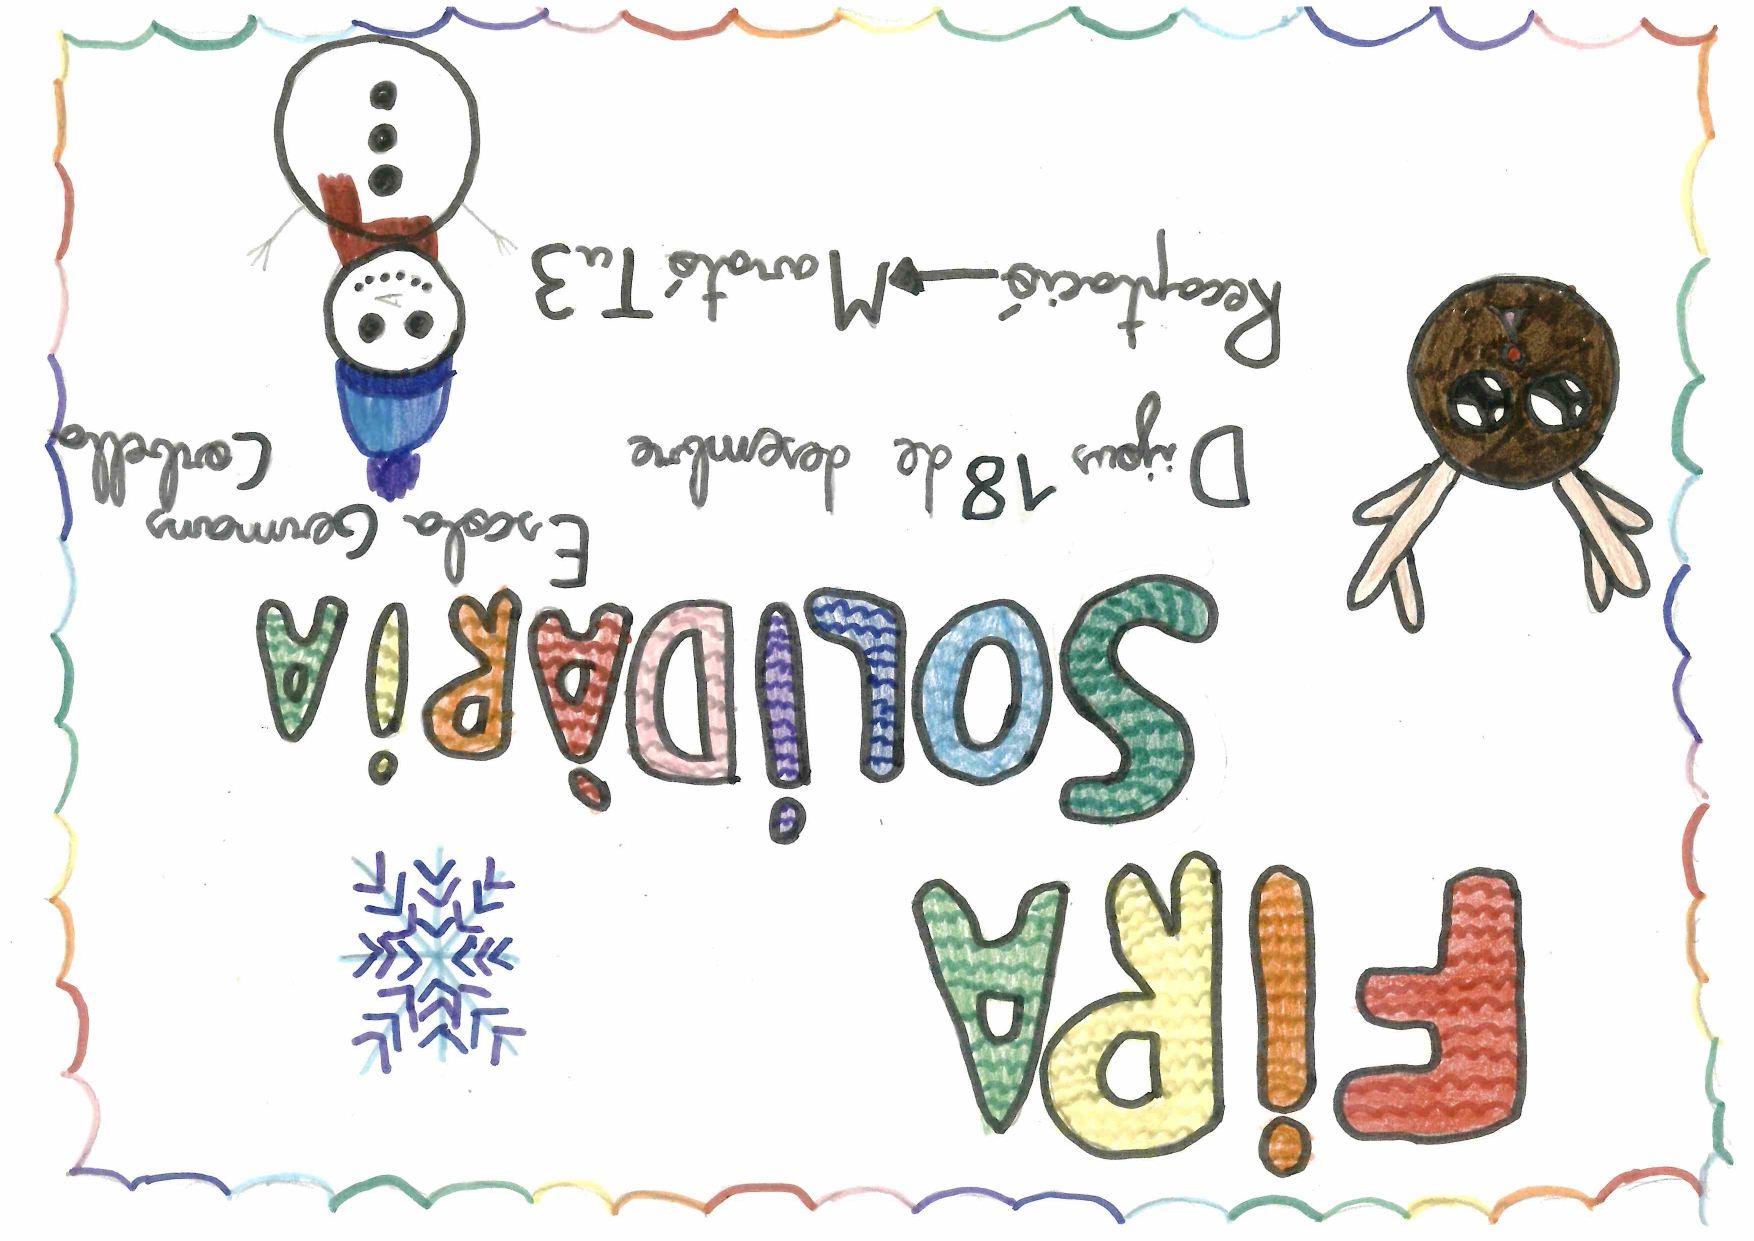 FiRA
SOLiDÀRiA
Dijous 18 de desembre
Escola Germans
Corbella
Recaptació → Marató Tv3